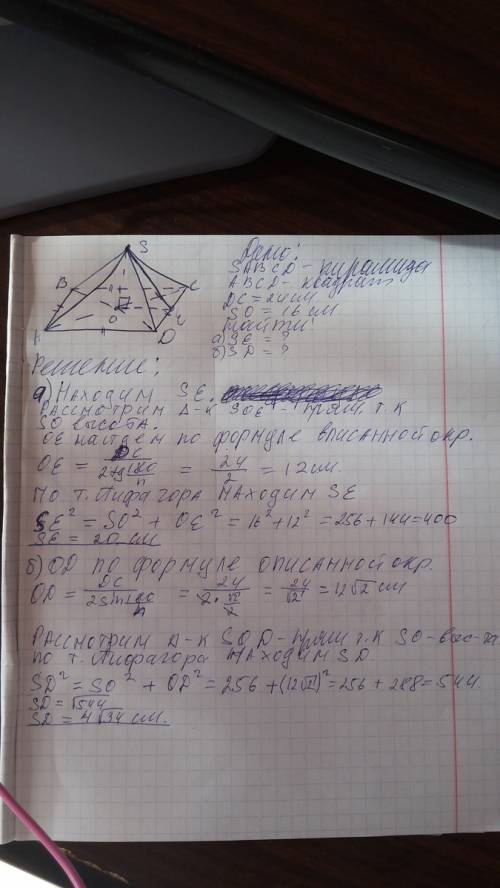 S
B
C
A
O
D
Дано:
SABCD - пирамида
ABCD - квадрат
DC = 24 см
SO = 16 см
Найти
а) SE = ?
б) SD = ?
Решение:
а) Находим SE.
Рассмотрим Δ-к SOE - прям. т.к
SO высота.
OE найдем по формуле вписанной окр.
OE = DC / 2tg 180/n = 24/2 = 12 см.
По т. Пифагора находим SE
SE² = SO² + OE² = 16² + 12² = 256 + 144 = 400
SE = 20 см
б) OD по формуле описанной окр.
OD = DC / 2sin 180/n = 24 / 2·√2/2 = 24/√2 = 12√2 см
Рассмотрим Δ-к SOD - прям т.к SO - выс-та
по т. Пифагора находим SD.
SD² = SO² + OD² = 256 + (12√2)² = 256 + 288 = 544.
SD = √544
SD = 4√34 см.